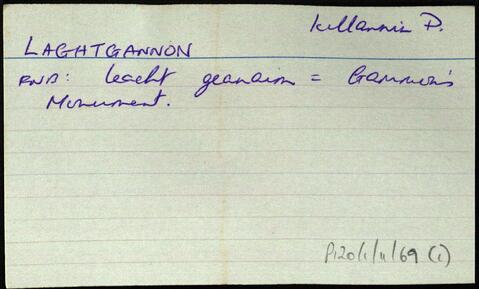 Killannin P.
LAGHTGANNON
FNB: leacht geanainn = Gannon's
Monument.
P120/1/11/69 (1)